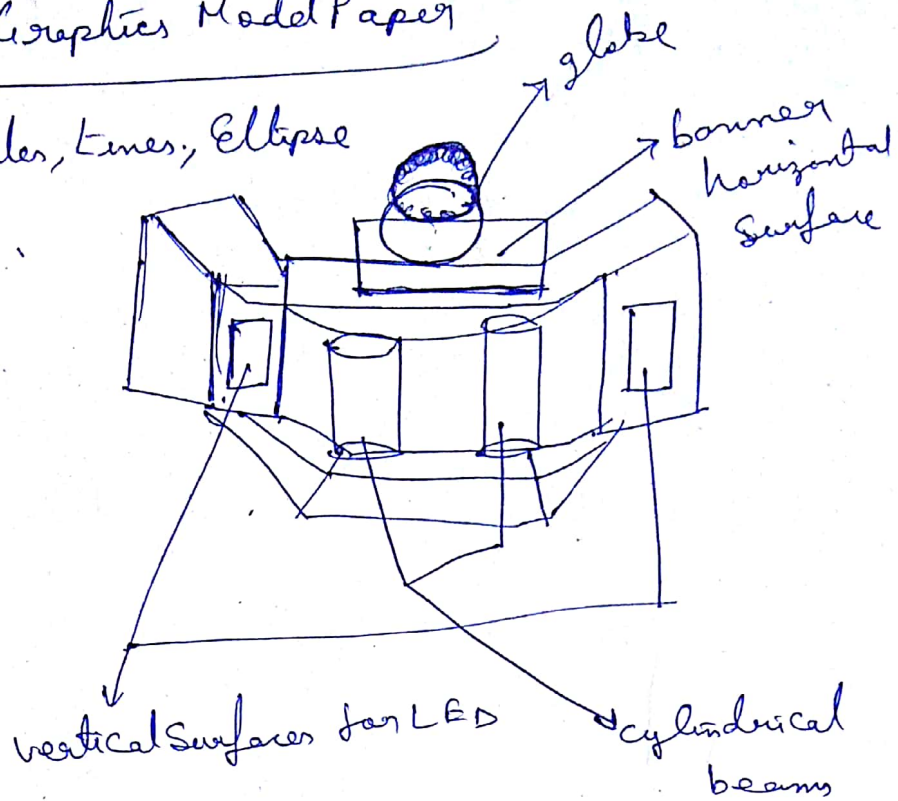 Graphics Model Paper
les, Lines, Ellipse
globe
banner
horizontal
Surface
vertical Surfaces for LED
cylindrical
beams